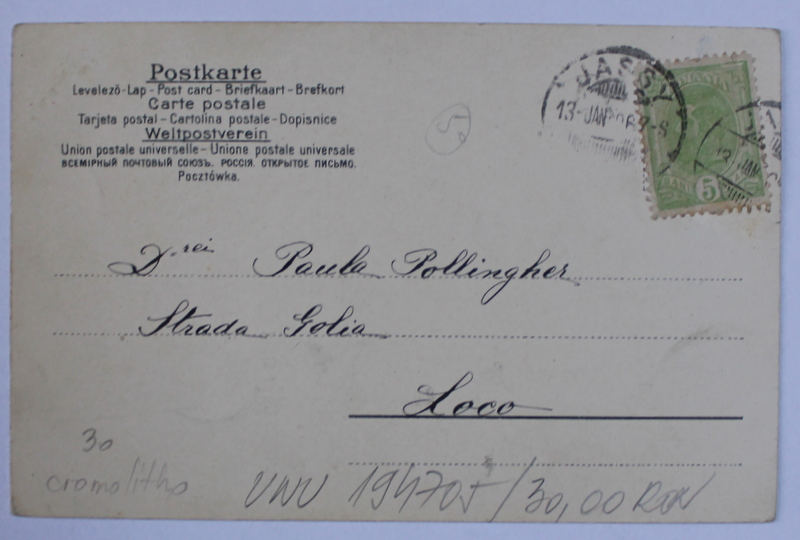 Postkarte
Levelező-Lap - Post card - Briefkaart - Brefkort
Carte postale
Tarjeta postal - Cartolina postale - Dopisnice
Weltpostverein
Union postale universelle - Unione postale universale
ВСЕМІРНЫЙ ПОЧТОВЫЙ СОЮЗЪ. РОССІЯ. ОТКРЫТОЕ ПИСЬМО.
Pocztówka.
JASSY
13-JAN
5
5
D.rei Paula Pollingher
Strada Golia
Loco
30
cromolitho
19470J/30,00 RON